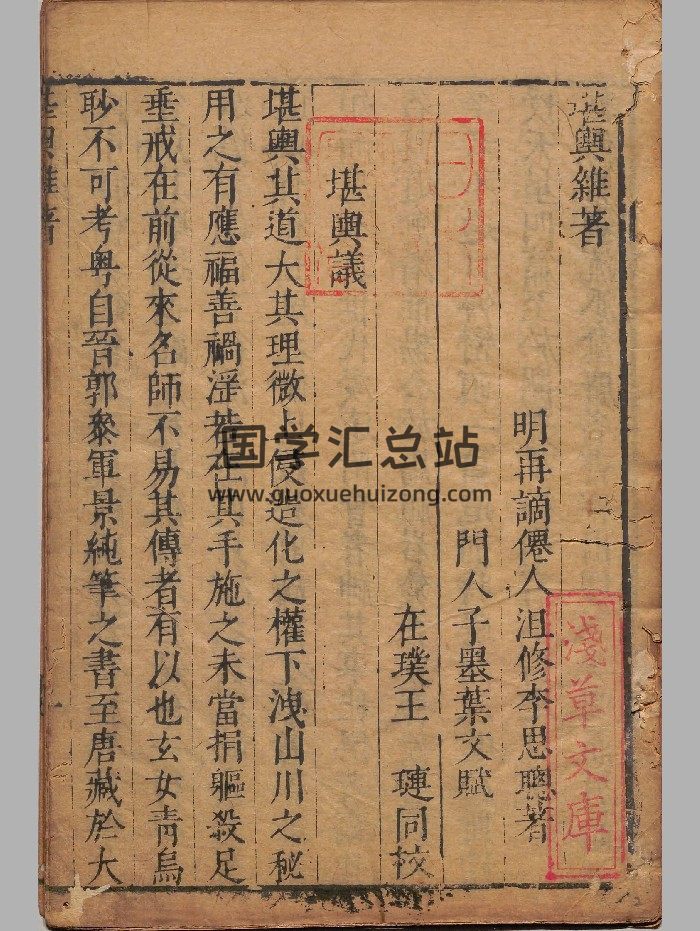 堪輿雜著
明再謫僊人沮修李思聰著
門人子墨葉文賦
在璞王 璉同校
堪輿議
堪輿其道大其理微上侵造化之權下洩山川之秘
用之有應福善禍淫若在其手施之未當捐軀殺足
垂戒在前從來名師不易其傳者有以也玄女青烏
眇不可考粵自晉郭叅軍景純筆之書至唐藏於大
堪輿雜著
淺草文庫
国学汇总站
www.guoxuehuizong.com